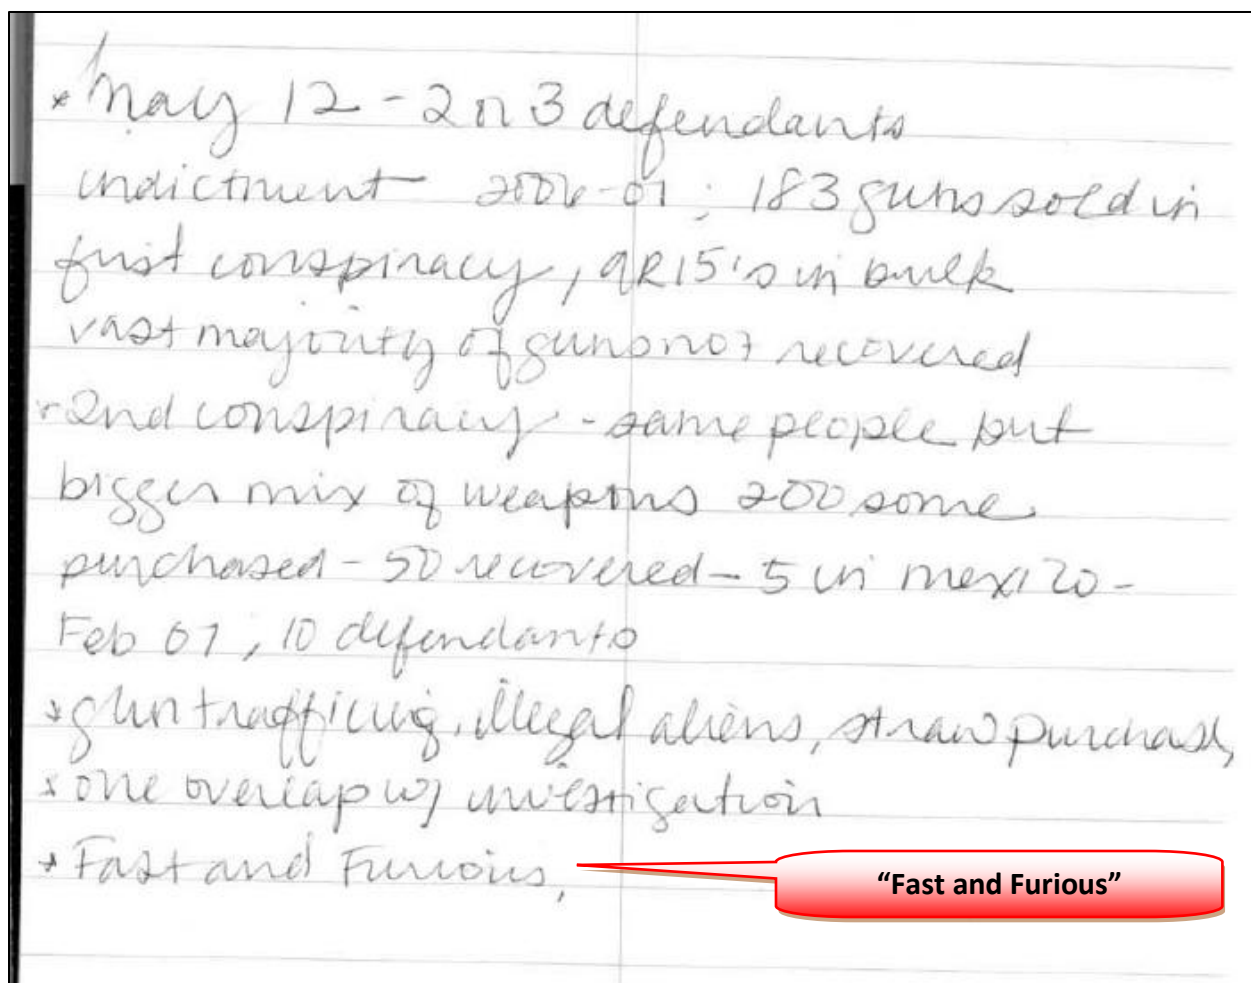 * May 12 - 2 or 3 defendants
indictment 2006-07; 183 guns sold in
first conspiracy, AR15's in bulk
vast majority of guns not recovered
* 2nd conspiracy - same people but
bigger mix of weapons 200 some
purchased - 50 recovered - 5 in mexico -
Feb 07, 10 defendants
* gun trafficing, illegal aliens, straw purchases,
* one overlap w/ investigation
* Fast and Furious,
“Fast and Furious”